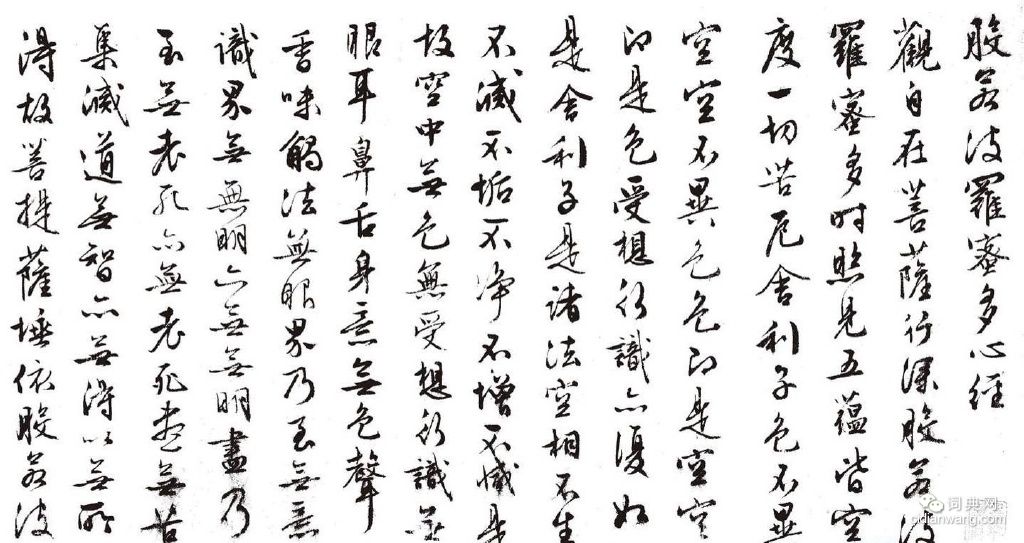 般若波羅蜜多心經
觀自在菩薩行深般若波
羅蜜多时照見五蘊皆空
度一切苦厄舍利子色不異
空空不異色色即是空空
即是色受想行識亦復如
是舍利子是諸法空相不生
不滅不垢不净不增不減是
故空中無色無受想行識無
眼耳鼻舌身意無色聲
香味觸法無眼界乃至無意
識界無無明亦無無明盡乃
至無老死亦無老死盡無苦
集滅道無智亦無得以無所
得故菩提薩埵依般若波
词典网
cidianwang.com